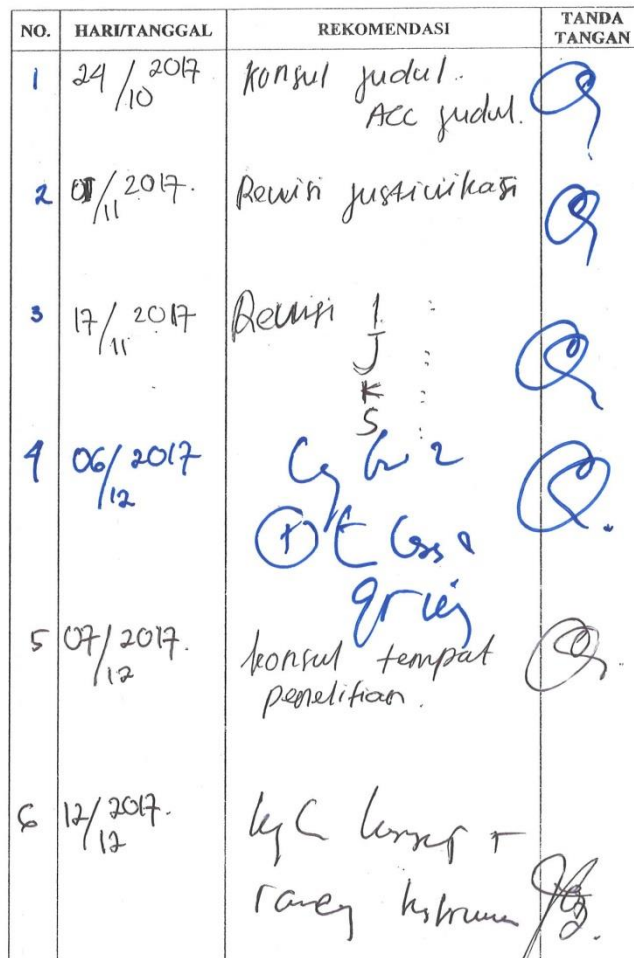 NO. HARI/TANGGAL REKOMENDASI TANDA TANGAN
1 24/10 2017 Konsul judul.
ACC judul.
2 01/11 2017. Revisi justivikasi
3 17/11 2017 Revisi I :
J :
K :
S :
4 06/12 2017
5 07/12 2017. konsul tempat
penelitian.
6 12/12 2017.